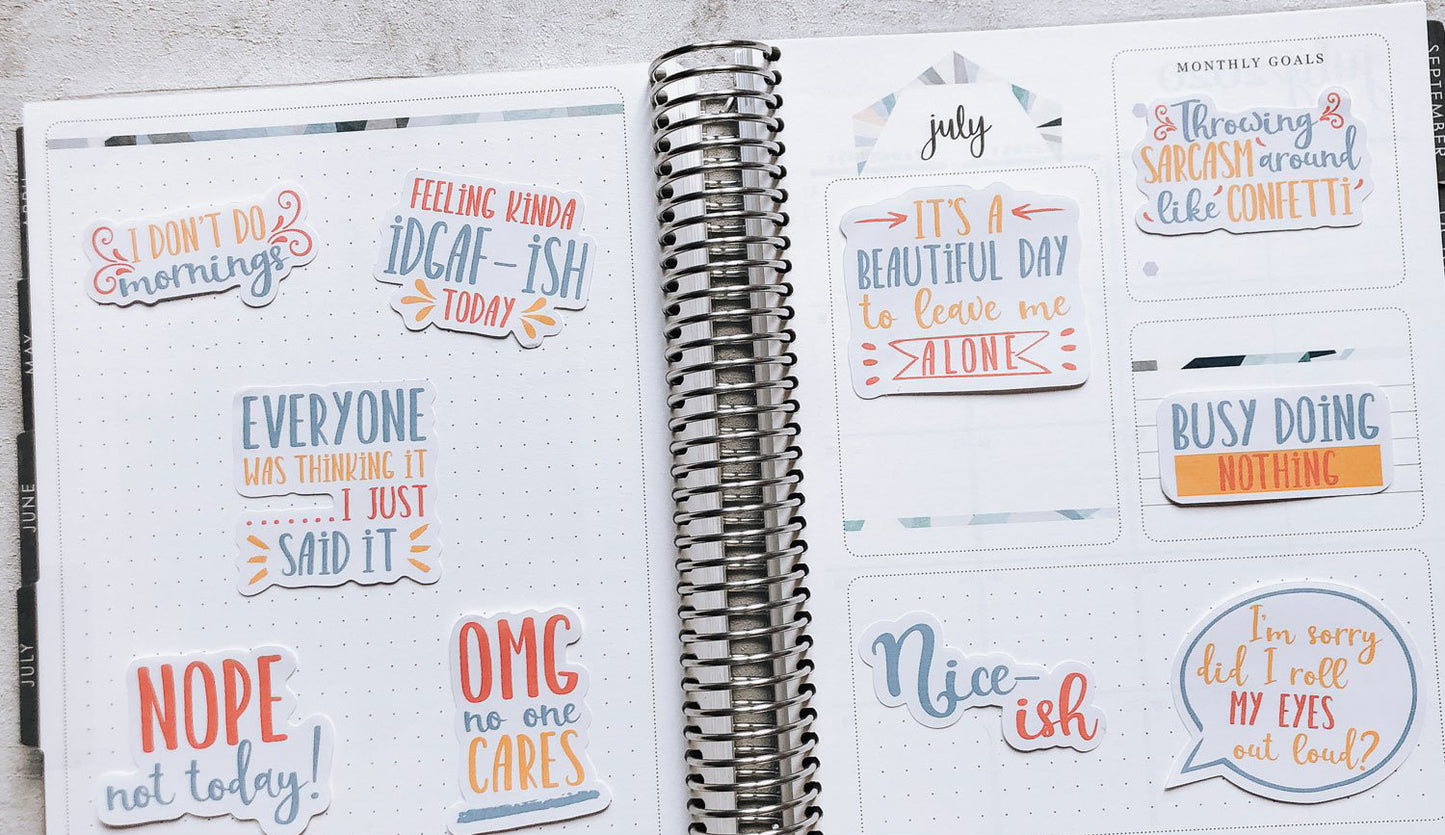 I DON'T DO
mornings
FEELING KINDA
iDGAF-iSH
TODAY
EVERYONE
WAS THINKING IT
.......I JUST
SAiD iT
NOPE
not today!
OMG
no one
CARES
MAY
JUNE
JULY
july
IT'S A
BEAUTiFUL DAY
to leave me
ALONE
MONTHLY GOALS
Throwing
SARCASM around
like 'CONFETTI'
BUSY DOiNG
NOTHiNG
Nice-
ish
I'm sorry
did I roll
MY EYES
out loud?
SEPTEMBER